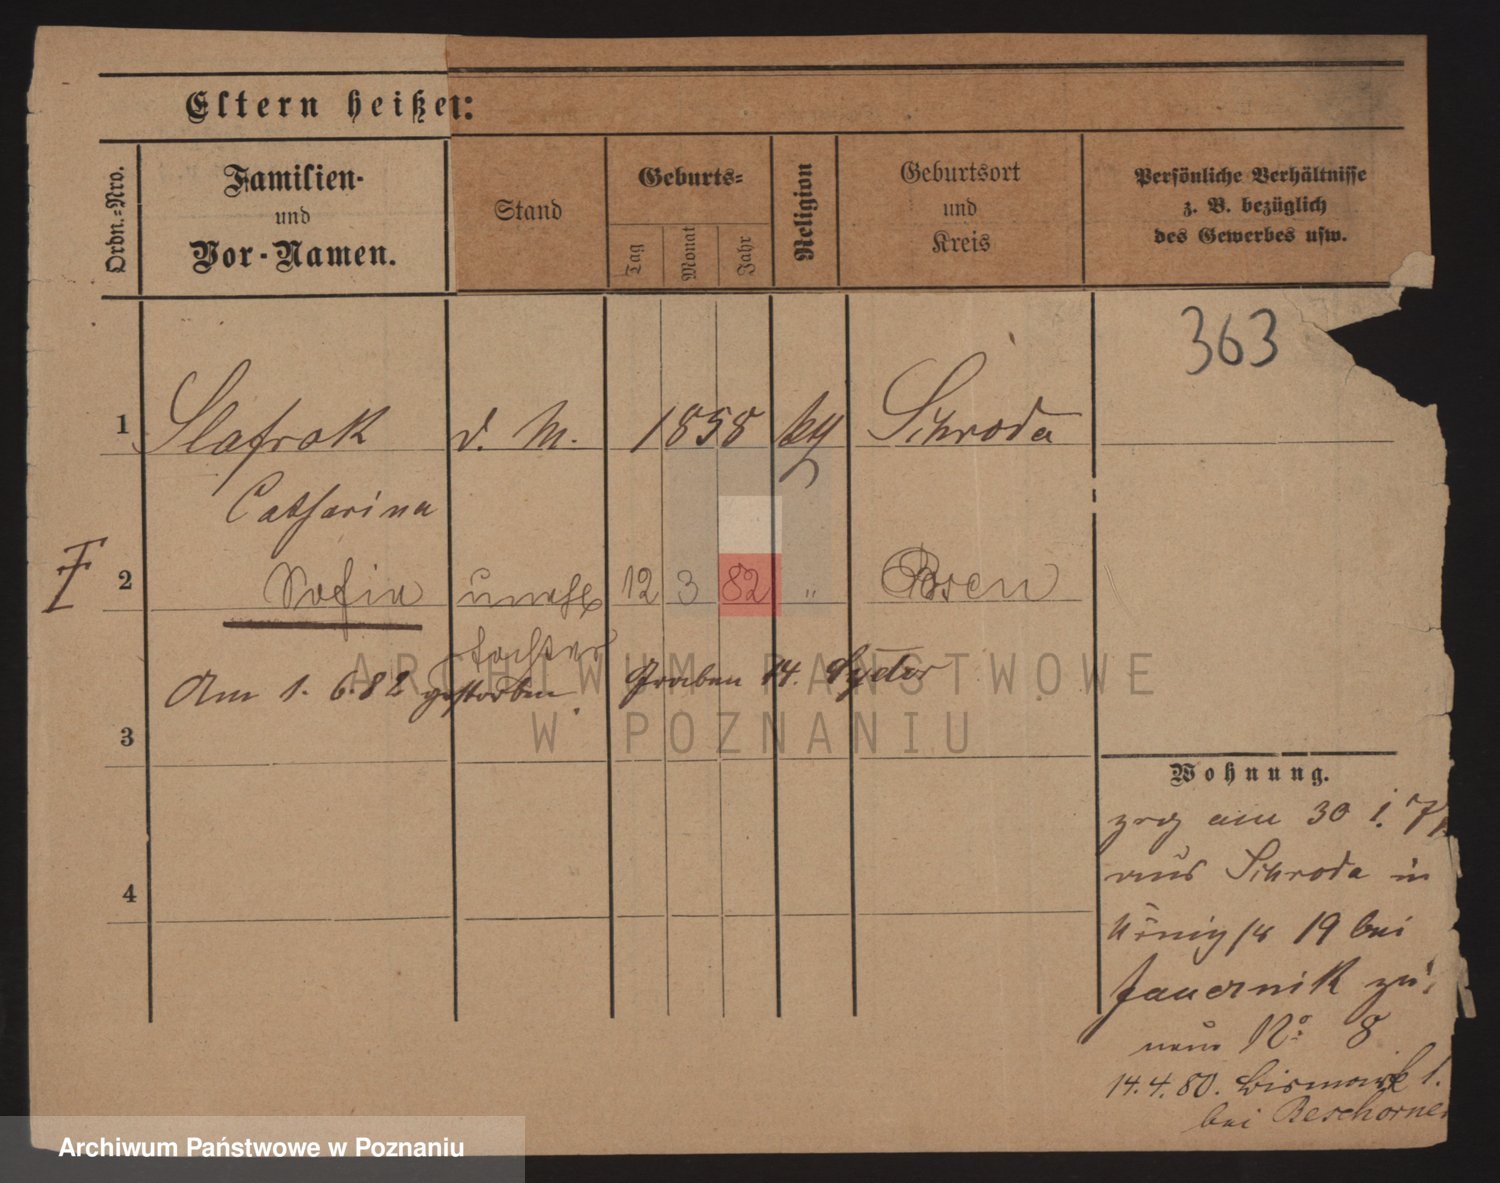 Eltern heißen:
Ordn.-Nro.
Familien- und Vor-Namen.
Stand
Geburts-
Tag
Monat
Jahr
Religion
Geburtsort und Kreis
Persönliche Verhältnisse
z. B. bezüglich
des Gewerbes usw.
363
1 Slafrok d. M. 1858 Schroda
Catharina
2 Sofia unehl 12 3 82 " Posen
tochter
Am 1. 6. 82 gestorben. Graben 14.
3
4
Wohnung.
zog am 30 1. 7
aus Schroda in
Königstr 19 bei
Jauernik
neue No 8
14.4.80. Bismark 1.
bei Beschorner
ARCHIWUM PAŃSTWOWE
W POZNANIU
Archiwum Państwowe w Poznaniu